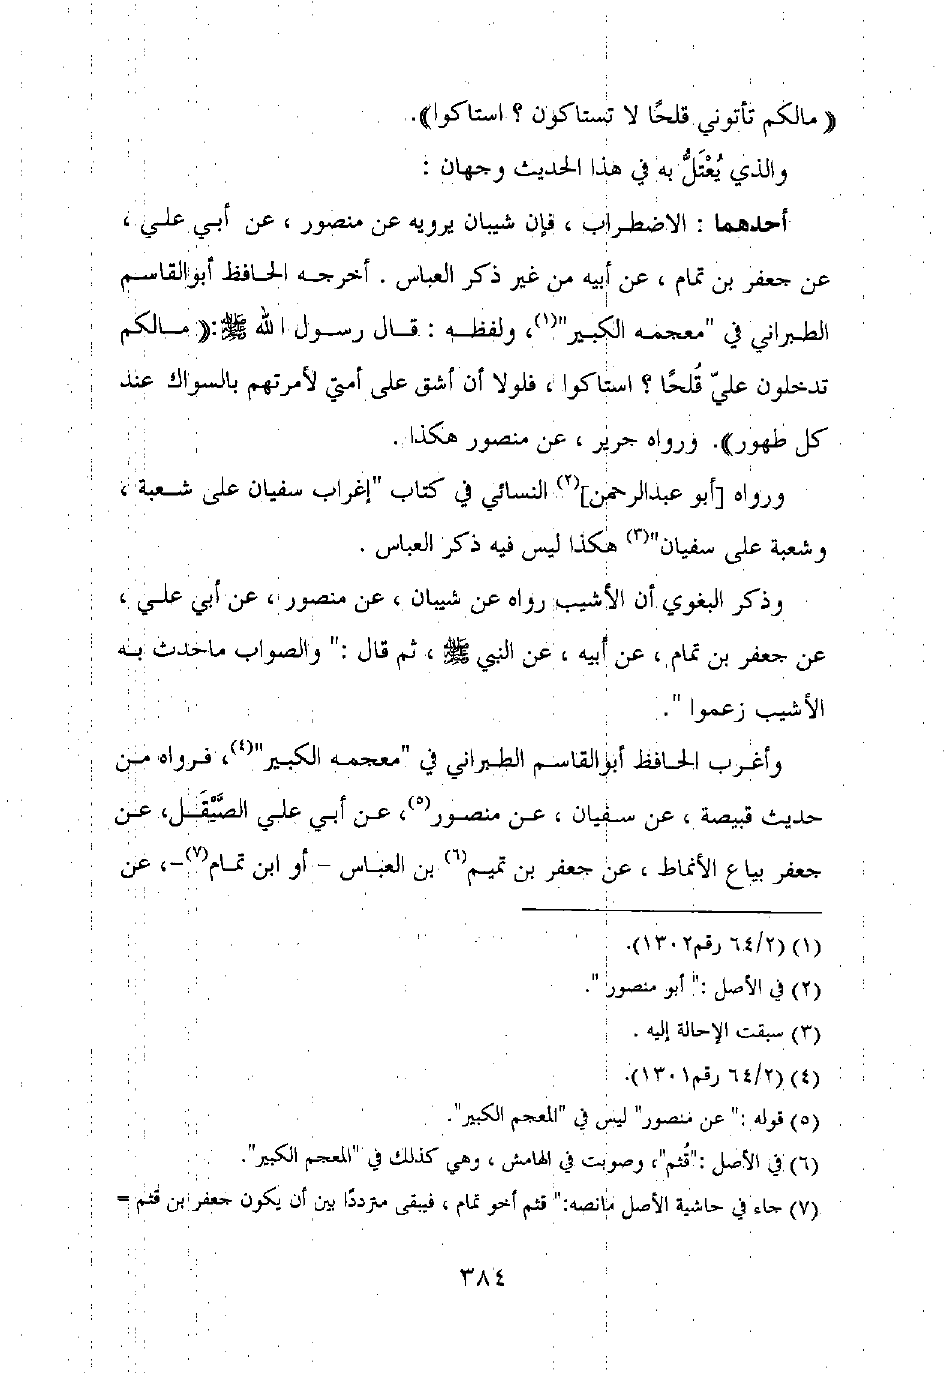 ﴿ مالكم تأتوني قلحًا لا تستاكون ؟ استاكوا﴾.
والذي يُعْتَلُّ به في هذا الحديث وجهان :
أحدهما : الاضطراب ، فإن شيبان يرويه عن منصور ، عن أبي علي ،
عن جعفر بن تمام ، عن أبيه من غير ذكر العباس . أخرجه الحافظ أبو القاسم
الطبراني في "معجمه الكبير"(١)، ولفظه : قال رسول الله ﷺ:﴿ مالكم
تدخلون عليّ قُلحًا ؟ استاكوا ، فلولا أن أشق على أمتي لأمرتهم بالسواك عند
كل طهور﴾. ورواه جرير ، عن منصور هكذا .
ورواه [أبو عبدالرحمن](٢) النسائي في كتاب "إغراب سفيان على شعبة ،
وشعبة على سفيان"(٣) هكذا ليس فيه ذكر العباس .
وذكر البغوي أن الأشيب رواه عن شيبان ، عن منصور ، عن أبي علي ،
عن جعفر بن تمام ، عن أبيه ، عن النبي ﷺ ، ثم قال :" والصواب ماحدث به
الأشيب زعموا ".
وأغرب الحافظ أبو القاسم الطبراني في "معجمه الكبير"(٤)، فرواه من
حديث قبيصة ، عن سفيان ، عن منصور(٥)، عن أبي علي الصَّيْقَل، عن
جعفر بياع الأنماط ، عن جعفر بن تميم(٦) بن العباس - أو ابن تمام(٧)-، عن
(١) (٦٤/٢ رقم١٣٠٢).
(٢) في الأصل :" أبو منصور ".
(٣) سبقت الإحالة إليه .
(٤) (٦٤/٢ رقم١٣٠١).
(٥) قوله :" عن منصور" ليس في "المعجم الكبير".
(٦) في الأصل :"قُثم"، وصوبت في الهامش ، وهي كذلك في "المعجم الكبير".
(٧) جاء في حاشية الأصل مانصه:" قثم أخو تمام ، فيبقى مترددًا بين أن يكون جعفر بن قثم =
٣٨٤